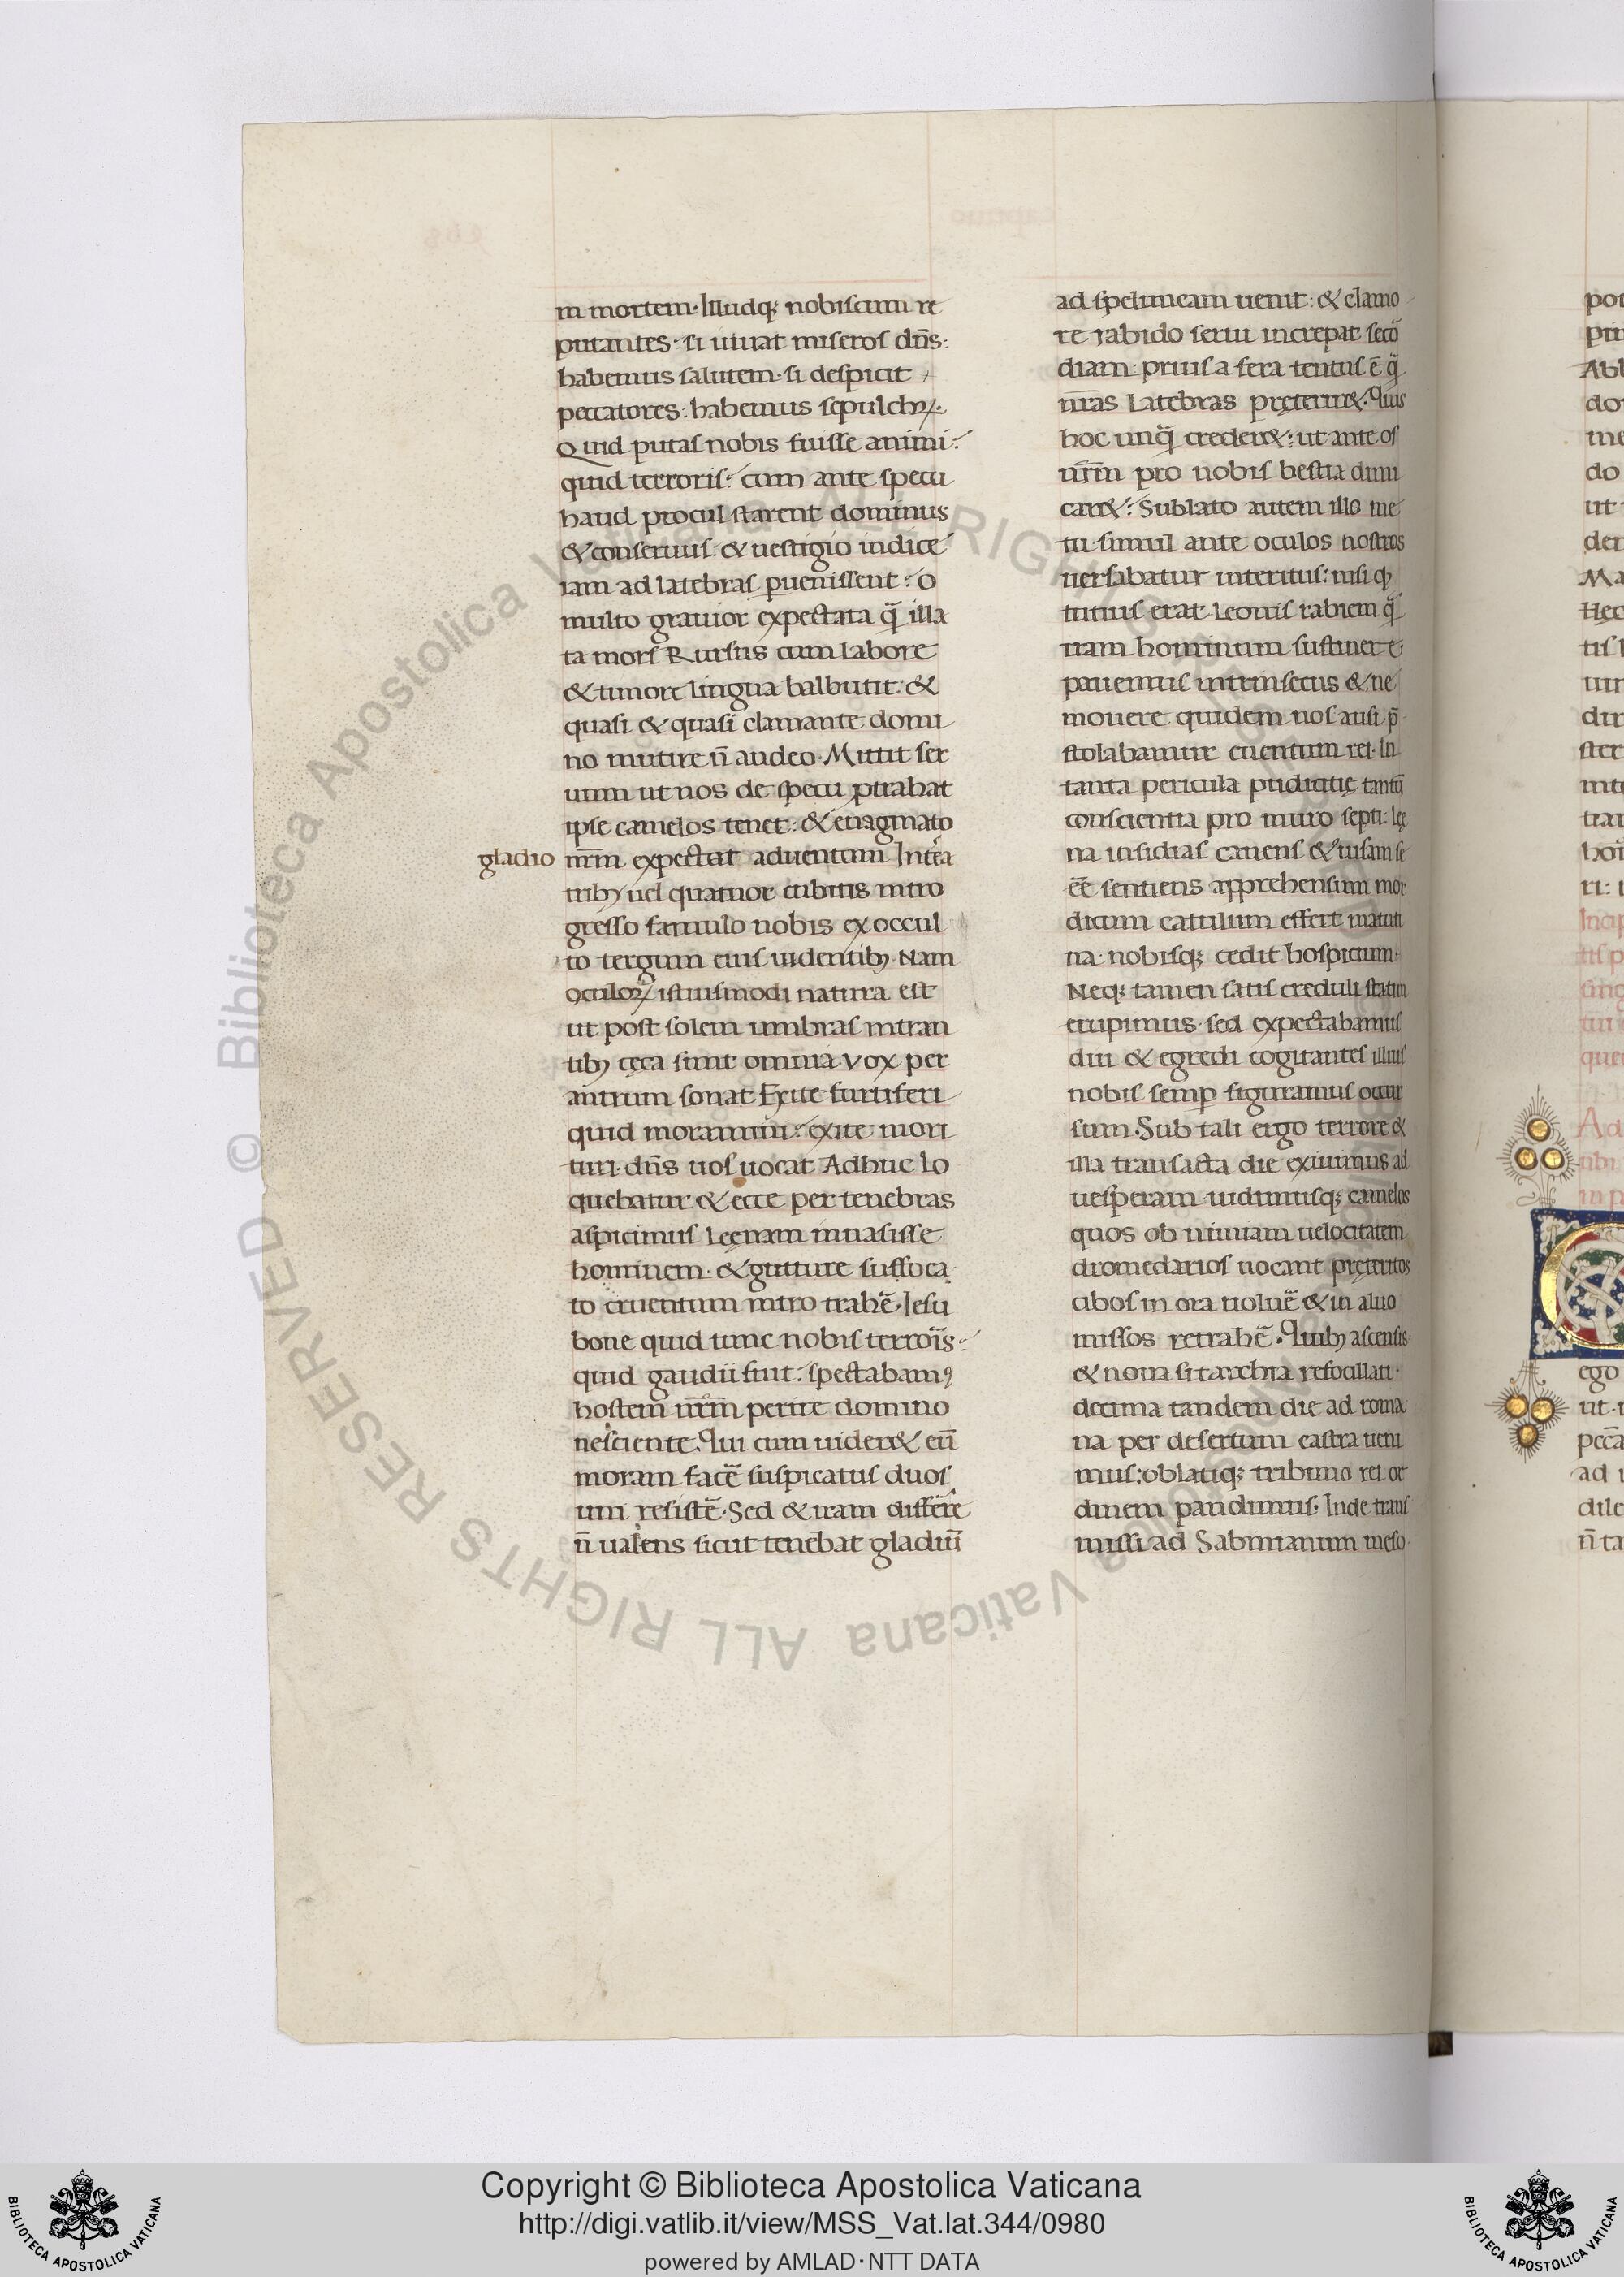 in mortem· Illudq; nobiscum re
putantes· si iuuat miseros dn̄s:
habemus salutem· si despicit
peccatores: habemus sepulchꝝ·
Quid putas nobis fuisse animi:
quid terroris: cum ante specu
haud procul starent dominus
& conseruus: & uestigio indice
iam ad latebras ꝑuenissent: o
multo grauior expectata q̄ illa
ta mors Rursus cum labore
& timore lingua balbutit· &
quasi & quasi clamante domi
no mutire n̄ audeo· Mittit ser
uum ut nos de specu ꝓtrahat
ipse camelos tenet: & euaginato
gladio nr̄m expectat aduentum Intēa
tribꝫ uel quatuor cubitis intro
gresso famulo nobis ex occul
to tergum eius uidentibꝫ· Nam
oculoꝝ istiusmodi natura est
ut post solem umbras intran
tibꝫ cęca sint omnia· Vox per
antrum sonat Exite furciferi
quid moramini: exite mori
turi· dn̄s uos uocat Adhuc lo
quebatur & ecce per tenebras
aspicimus Leęnam inuasisse
hominem· & gutture suffoca
to cruentum intro trahē· Iesu
bone quid tunc nobis terrors:
quid gaudii fuit: spectabamꝰ
hostem nr̄m perire domino
nesciente· Qui cum uider& eū
moram facē suspicatus duos
uni resistē· Sed & iram differē
n̄ ualens sicut tenebat gladiū
ad speluncam uenit: & clamo
re rabido serui increpat secō
diam· prius a fera tentus ē q̄
nr̄as Latebras pręterir&· Quis
hoc unq̄ creder&: ut ante os
nr̄m pro nobis bestia dimi
car&: Sublato autem illo me
tu· simul ante oculos nostros
uersabatur interitus: nisi qꝫ
tutius erat Leonis rabiem q̄
iram hominum sustinere
pauemus intrinsecus & ne
mouere quidem nos ausi p̄
stolabamur euentum rei· In
tanta pericula pudicitię tantū
conscientia pro muro septi: leę
na insidias cauens & uisam se
ēē sentiens apprehensum mor
dicum catulum effert matuti
na· nobisq; cedit hospicium·
Neq; tamen satis creduli statim
erupimus· sed expectabamus
diu & egredi cogitantes illius
nobis semꝑ figuramus occur
sum· Sub tali ergo terrore &
illa transacta die exiuimus ad
uesperam uidimusq; camelos
quos ob nimiam uelocitatem
dromedarios uocant pręteritos
cibos in ora uoluē & in aluo
missos retrahē· Quibꝫ ascensis
& noua sitarchia refocillati·
decima tandem die ad roma
na per desertum castra ueni
mus: oblatiq; tribuno rei or
dinem pandimus· Inde trans
missi ad Sabinianum meso
Copyright © Biblioteca Apostolica Vaticana
http://digi.vatlib.it/view/MSS_Vat.lat.344/0980
powered by AMLAD·NTT DATA